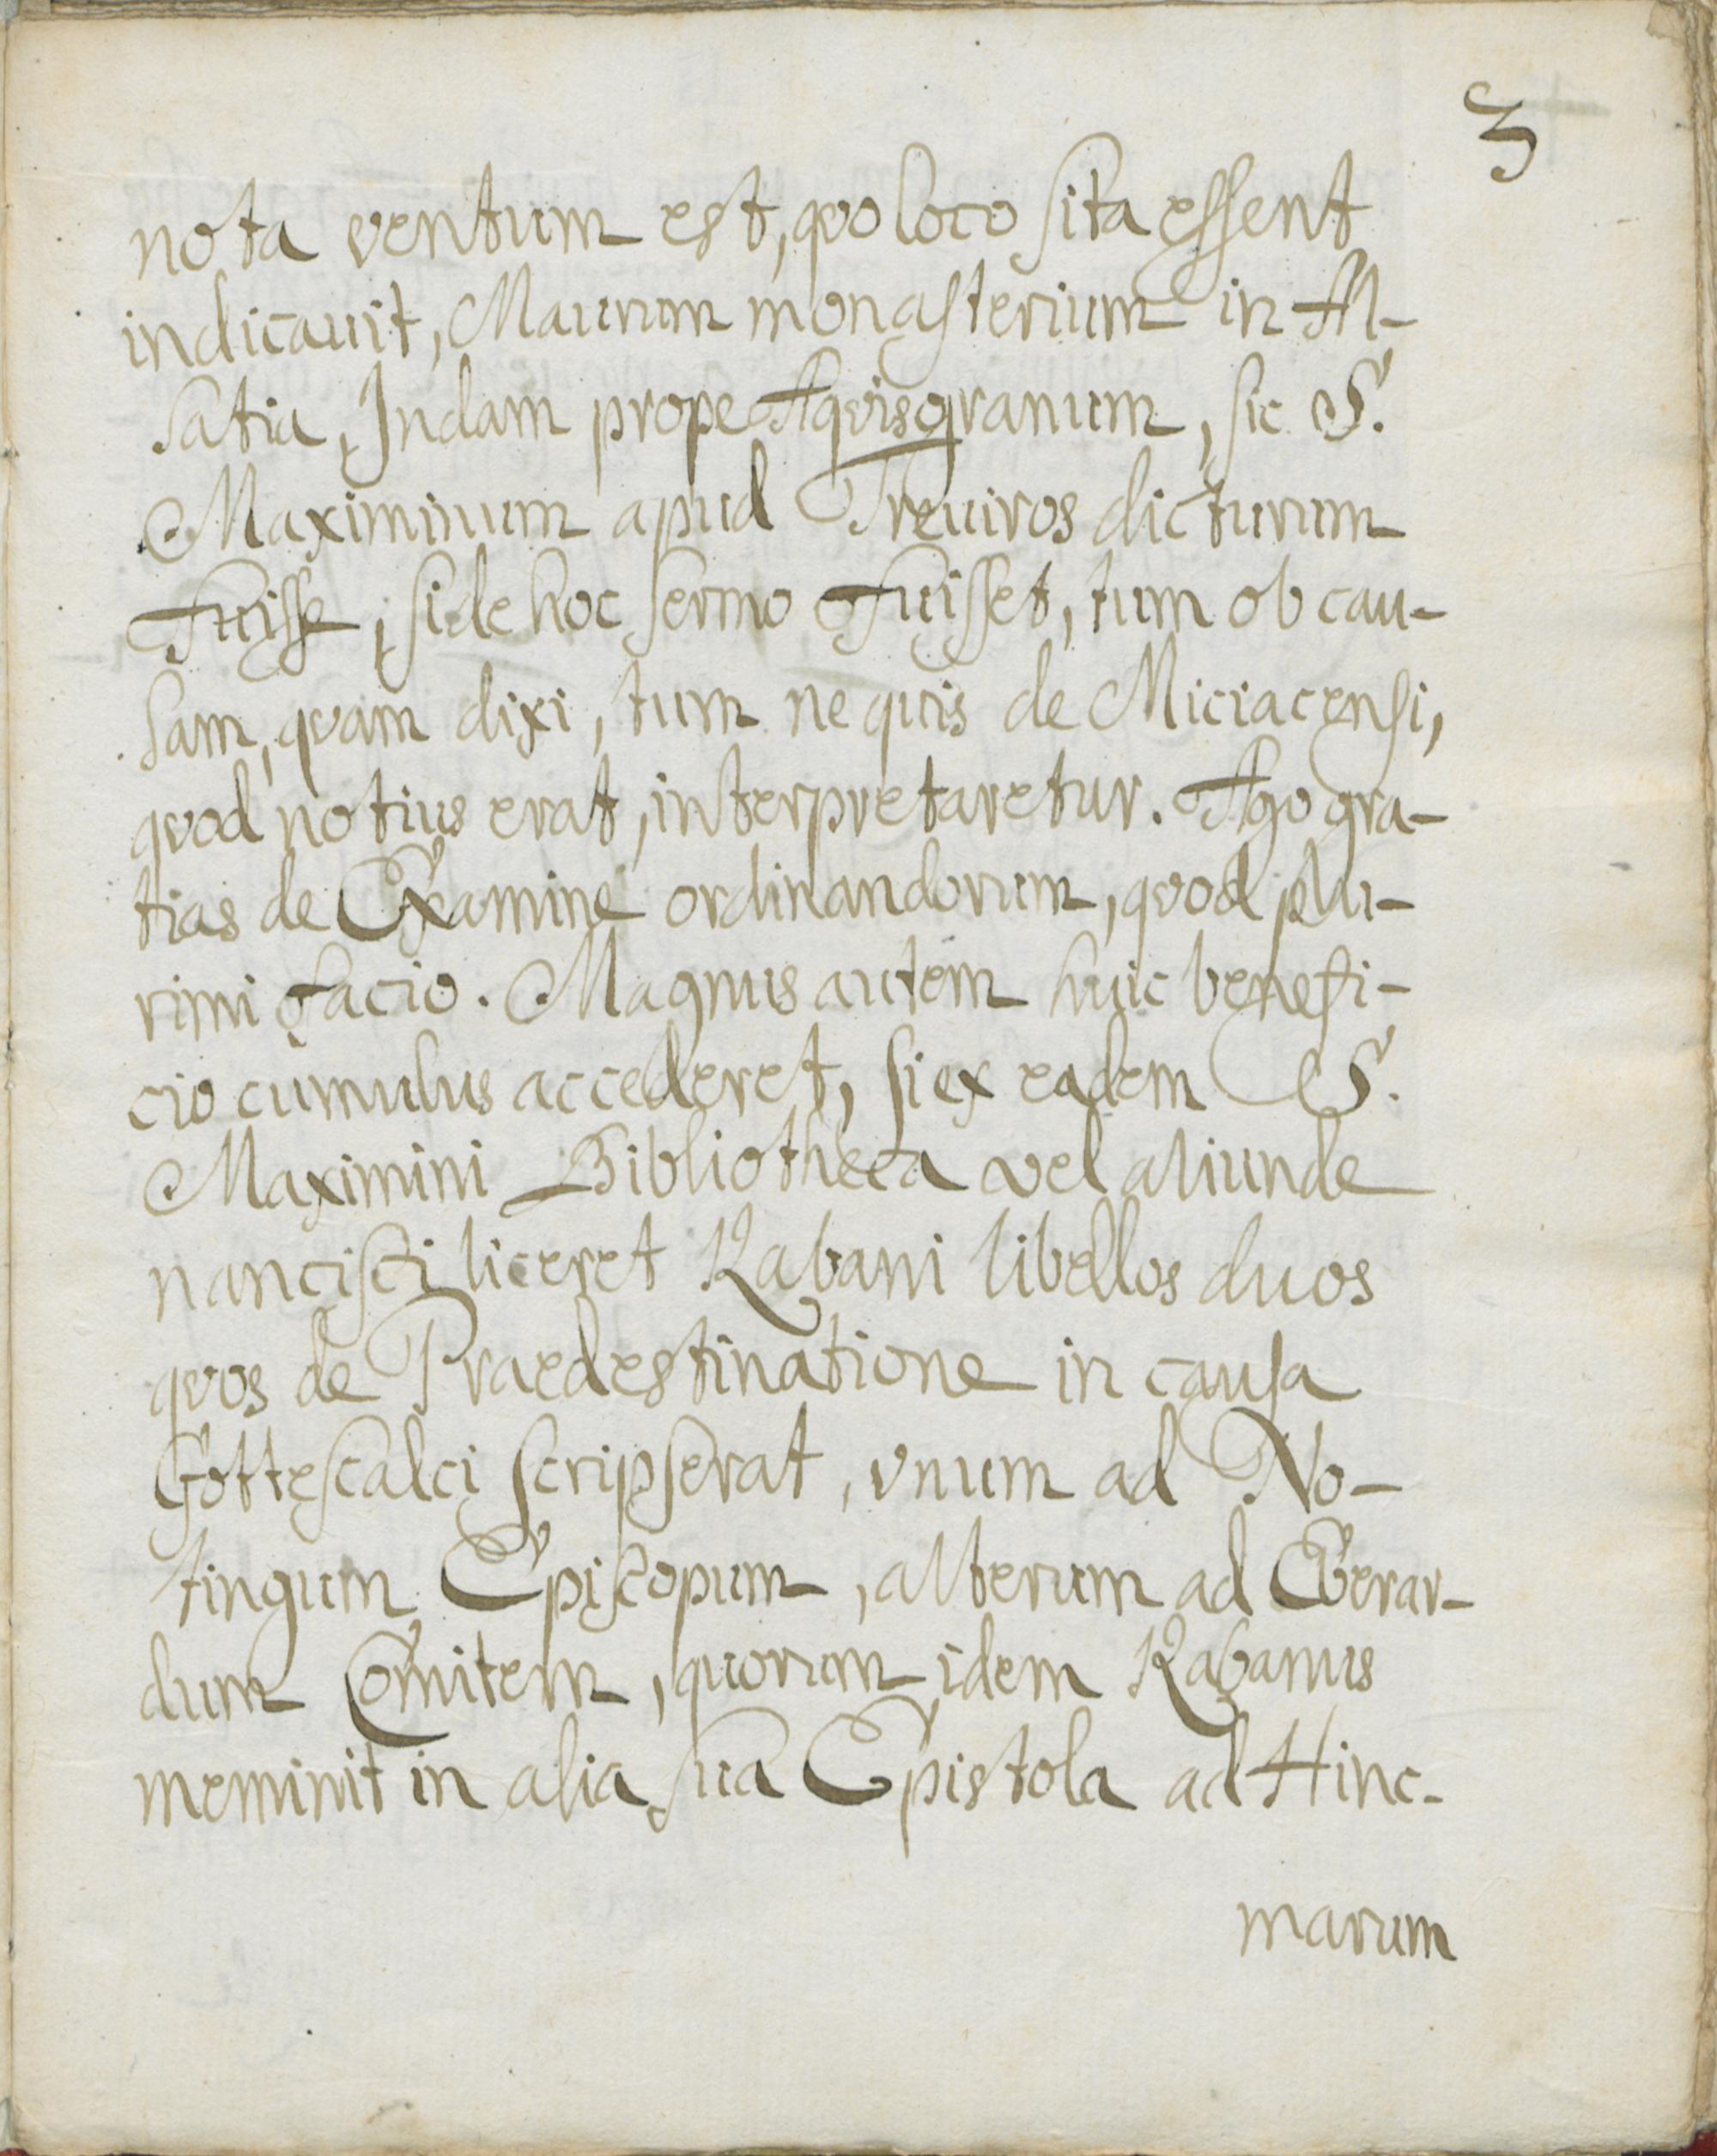 3
nota ventum est, quo loco sita essent
indicauit, Maurum monasterium in Al-
satia, Indam prope Aquisgranum, sic S.
Maximinum apud Treuiros dicturum
Fuisse, si de hoc sermo Fuisset, tum ob cau-
sam, quam dixi, tum ne quis de Miciacensi,
quod notius erat, interpretaretur. Ago gra-
tias de Examine ordinandorum, quod plu-
rimi facio. Magnus autem huic benefi-
cio cumulus accederet, si ex eadem S.
Maximini Bibliotheca vel aliunde
nancisci liceret Rabani libellos duos
quos de Praedestinatione in causa
Gottescalci scripserat, vnum ad No-
tingum Episcopum, alterum ad Eberar-
dum Comitem, quorum idem Rabanus
meminit in alia sua Epistola ad Hinc-
marum